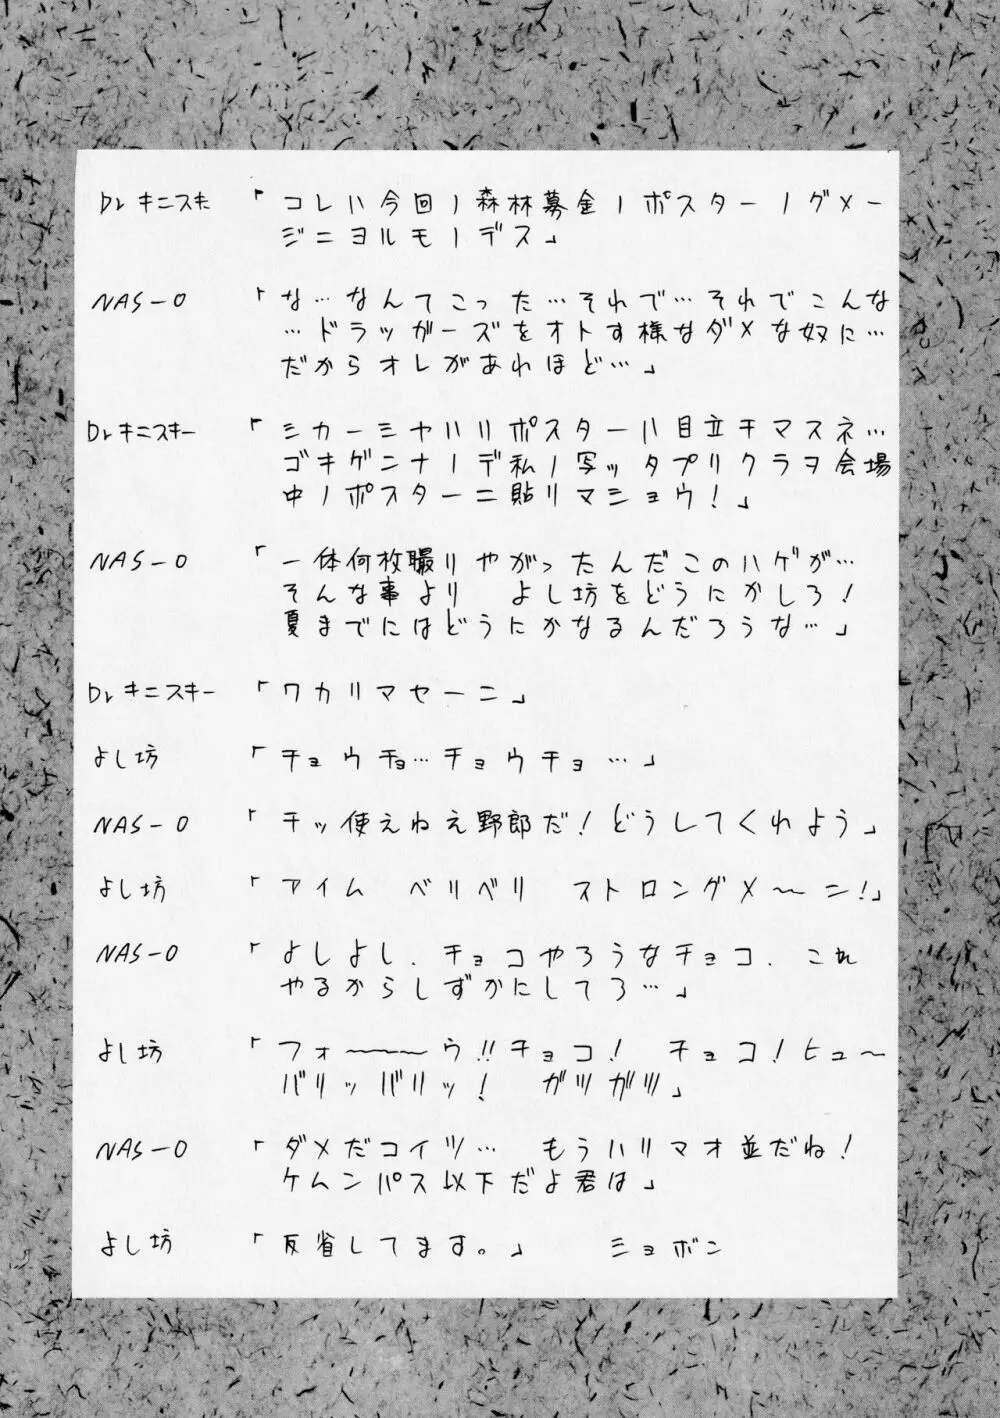 Dr キニスキ 「コレハ今回ノ森林募金ノポスターノダメー
ジニヨルモノデス」
NAS-O 「な…なんてこった…それで…それでこんな
…ドラッガーズをオトす様なダメな奴に…
だからオレがあれほど…」
Dr キニスキー 「シカーミヤハリポスターハ目立チマスネ…
ゴキゲンナノデ私ノ写ッタプリクラヲ会場
中ノポスターニ貼リマショウ！」
NAS-O 「一体何枚撮りやがったんだこのハゲが…
そんな事より よし坊をどうにかしろ！
夏までにはどうにかなるんだろうな…」
Dr キニスキー 「ワカリマセーニ」
よし坊 「チョウチョ…チョウチョ…」
NAS-O 「チッ使えねえ野郎だ！どうしてくれよう」
よし坊 「アイム ベリベリ ストロングメ〜ニ！」
NAS-O 「よしよし、チョコやろうなチョコ、これ
やるからしずかにしてろ…」
よし坊 「フォ〜〜〜ウ!!チョコ！ チョコ！ヒュ〜
バリッバリッ！ ガツガツ」
NAS-O 「ダメだコイツ… もうハリマオ並だね！
ケムンパス以下だよ君は」
よし坊 「反省してます。」 ショボン